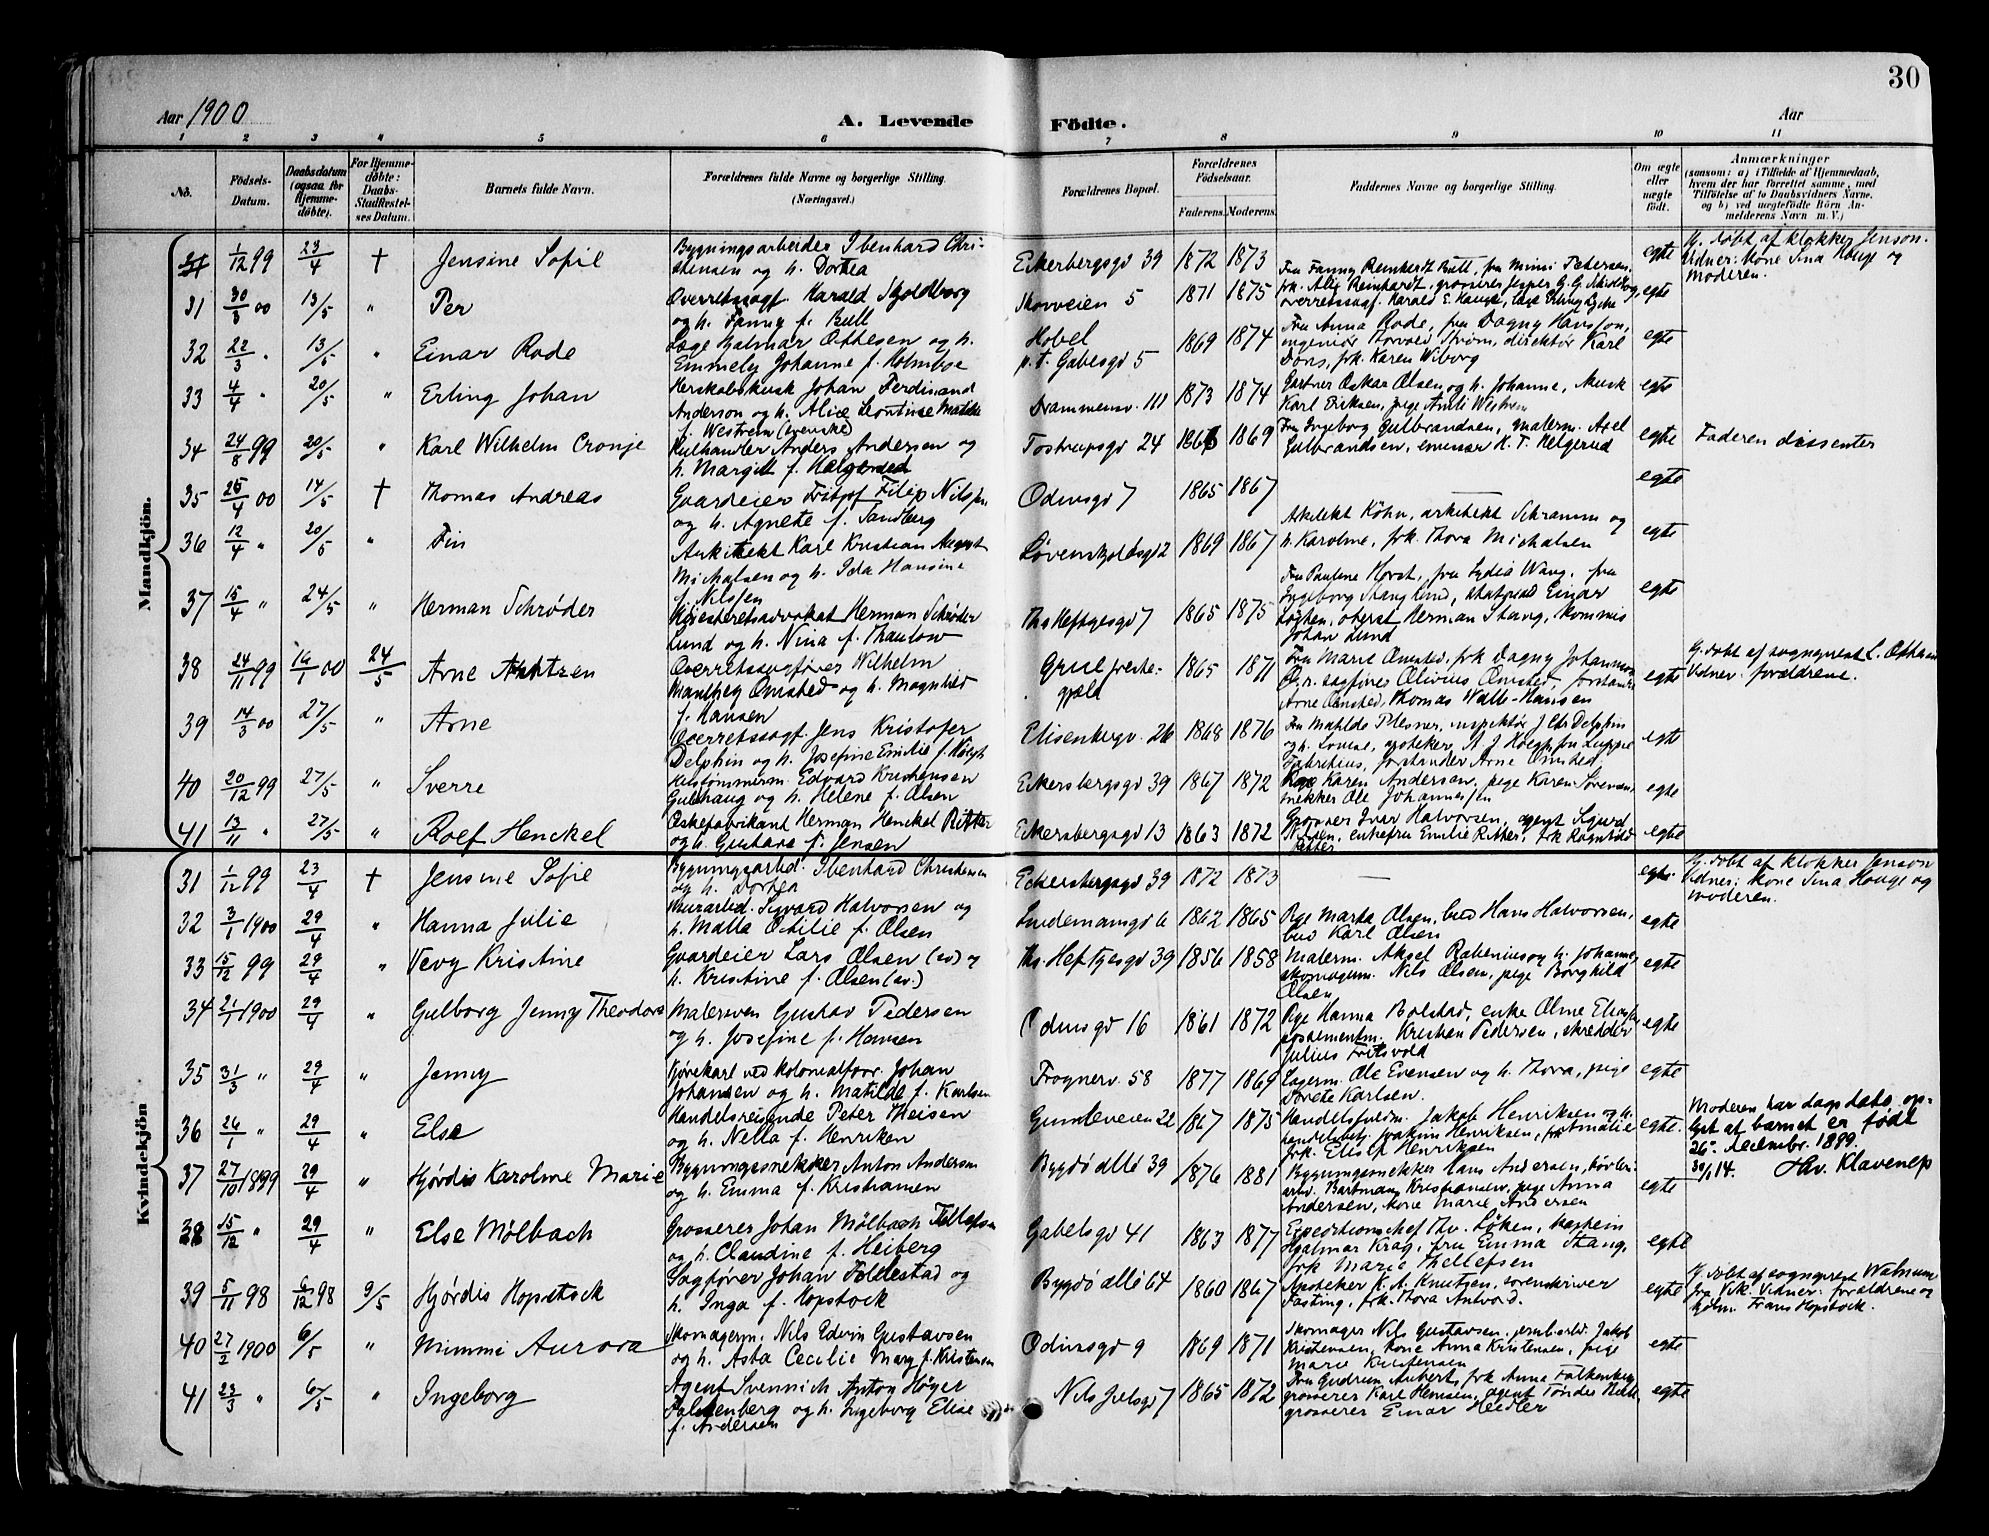 30
Aar 1900
A. Levende Födte.
Aar
1 2 3 4 5 6 7 8 9 10 11
No.
Födsels-Datum.
Daabsdatum (ogsaa for Hjemme-döbte).
For Hjemme-döbte: Daabs-Stadfæstelses Datum.
Barnets fulde Navn.
Forældrenes fulde Navne og borgerlige Stilling. (Næringsvei.)
Forældrenes Bopæl.
Forældrenes Födselsaar.
Faderens. Moderens.
Faddernes Navne og borgerlige Stilling.
Om ægte eller uægte födt.
Anmærkninger
(saasom: a) i Tilfælde af Hjemmedaab, hvem der har forrettet samme, med Tilföielse af to Daabsvidners Navne, og b) ved uægtefödte Börn Anmelderens Navn m. V.)
Mandkjön.
1/12 99 23/4 † Jensine Sofie Bygningsarbeider Ibenhard Christensen og h. Dortea Eckerbergsgd 39 1872 1873 egte Hj. døbt af klokker Jenson. Vidner: Kone Sina Hauge og Moderen.
31 30/3 00 13/5 " Per Overretssagf. Harald Skjoldborg og h. Fanny f. Bull Skovveien 5 1871 1875 Fru Fanny Reinhardt Bull, fru Mimi Petersen, frk. Alix Reinhardt, grosserer Jesper overretssagf. Harald E. egte
32 22/3 " 13/5 " Einar Rode Læge Hjalmar Ottesen og h. Emmely Johanne f. Holmboe Hobøl p.t. Gabelsgd 5 1869 1874 Fru Anna Rode, fru Dagny Hansson, ingeniør Torvald Strøm, direktør Karl Dons, frk. Karen Wiborg egte
33 4/4 " 20/5 " Erling Johan Herskabskusk Johan Ferdinand Anderson og h. Alice Leontine Matilde f. Westrem (svenske) Drammensv. 111 1873 1874 Gartner Oskar Olsen og h. Johanne, Kusk Karl Eriksen, pige Amli Westrem egte
34 24/8 99 20/5 " Karl Wilhelm Cronje Kulhandler Anders Andersen og h. Margit f. Helgerud Tostrupsgd 24 1869 Fru Ingeborg Gulbrandsen, malerm. Axel Gulbrandsen, K. T. Helgerud egte Faderen dissenter
35 25/4 00 14/5 † Thomas Andreas Gaardeier Fritjof Filip Nilsen og h. Agnete f. Sandberg Odinsgd 7 1865 1867 egte
36 12/4 " 20/5 " Fin Arkitekt Karl Kristian August Michalsen og h. Ida Hansine f. Nilssen Løvenskjoldsgd 2 1869 1867 Arkitekt Köhn, arkitekt Schramm og h. Karoline, frk. Thora Michalsen egte
37 15/4 " 24/5 " Herman Schrøder Høiesteretsadvokat Herman Schrøder Lund og h. Nina f. Thaulow Ths Heftyesgd 7 1865 1875 Fru Pauline Horst, fru Lydia Wang, fru Ingeborg Stang Lund, Einar Løchen, oberst Herman Stang, kommis Johan Lund egte
38 24/11 99 16/1 00 24/5 Arne Arntzen Overretssagfører Wilhelm Manthey Omsted og h. Magnhild f. Hansen Grue prestegjæld 1865 1871 Fru Marie Omsted, frk Dagny Johannsen O.r. sagfører Olivius Omsted, forstander Arne Omsted, Thomas Walle-Hansen egte Hj. døbt af sogneprest L. Vidner: forældrene.
39 14/3 00 27/5 " Arne Overretssagf. Jens Kristofer Delphin og h. Josefine Emilie f. Høegh Elisenbergv. 26 1868 1876 Fru Matilde Plesner, inspektør J. Chr Delphin og h. Louise, apoteker A. J. Høegh, fru Fabritius, forstander Arne Omsted egte
40 20/12 99 27/5 " Sverre Hustømmerm. Edvard Kristensen Gulhaug og h. Helene f. Olsen Eckersbergsgd 39 1867 1872 Pige Karen Andersen, pige Karen Sørensen, snekker Ole Johannessen egte
41 13/11 " 27/5 " Rolf Henckel Æskefabrikant Herman Henckel Ritter og h. Gustava f. Jensen Eckersbergsgd 13 1863 1872 Grosserer Ivar Halvorsen, agent Sigurd Nilsen, enkefru Emilie Ritter, frk Ragnhild Ritter egte
Kvindekjön
31 1/12 99 23/4 † Jensine Sofie Bygningsarbeid. Ibenhard Christensen og h. Dortea Eckersbergsgd 39 1872 1873 — egte Hj. døbt af klokker Jenson Vidner: Kone Sina Hauge og moderen.
32 3/1 1900 29/4 " Hanna Julie Murarbeid. Sigvard Halvorsen og h. Matla Otilie f. Olsen Lindemansgd 6 1862 1865 Pige Marta Olsen, bud Hans Halvorsen, bud Karl Olsen egte
33 15/12 99 29/4 " Vevy Kristine Gaardeier Lars Olsen (sv) og h. Kristine f. Olsen (sv.) Ths. Heftyesgd 39 1856 1858 Malerm. Aksel Rabenius og h. Johanne, skomagerm. Nils Olsen, pige Borghild Olsen egte
34 21/1 1900 29/4 " Gulborg Jenny Theodora Malersven Gustav Pedersen og h. Josefine f. Hansen Odinsgd 16 1861 1872 Pige Hanna Bolstad, enke Oline possementm. Kristian Pedersen, skredder Julius Fritsvold egte
35 31/3 " 29/4 " Jenny Kjørekarl ved kolonialforr. Johan Johansen og h. Matilde f. Karlsen Frognerv. 58 1877 1869 Lagerm. Ole Evensen og h. Thora, pige Dorete Karlsen. egte
36 26/1 " 29/4 " Else Handelsreisende Peter Theisen og h. Nella f. Henriksen Gimleveien 22 1867 1875 Handelsfuldm. Jakob Henriksen og h. handelsbetj. Joakim Henriksen, frk Amalie frk. Elisif Henriksen egte. Moderen har dags dato oplyst at barnet er født 26. december 1899. 30/1 14. Hv. Klavenes
37 27/10 1899 29/4 " Hjørdis Karoline Marie Bygningssnekker Anton Andersen og h. Emma f. Kristiansen Bygdø allé 39 1876 1881 Bygningssnekker Hans Andersen, Bartman Kristiansen, pige Anna Andersen, kone Marie Andersen egte
38 15/12 " 29/4 " Else Mølbach Grosserer Johan Mølbach Tellefsen og h. Claudine f. Heiberg Gabelsgd 41 1863 1877 Expeditionschef Thv. Løken, kaptein Hjalmar Krag, fru Emma Stang, frk Marie Thellefsen egte
39 5/11 98 6/12 98 9/5 Hjørdis Hopstock Sagfører Johan Follestad og h. Inga f. Hopstock Bygdø allé 64 1860 1867 Apoteker K. A. Knutsen, sorenskriver Fasting, frk. Thora Antvord. egte Hj. døbt af sogneprest Walnum fra Vik. Vidner: forældrene og Frans Hopstock.
40 27/2 1900 6/5 " Mimmi Aurora Skomagerm. Nils Edvin Gustavsen og h. Asta Cecilie Mary f. Kristensen Odinsgd 9 1869 1871 Skomager Nils Gustavsen, jernarbd. Jakob Kristensen, kone Anna Kristensen, pige Marie Kristensen egte
41 23/3 " 6/5 " Ingeborg Agent Svennich Anton Høyer Falkenberg og h. Ingeborg Elise f. Andersen Nils Juelsgd 7 1865 1872 Fru Gudrun Aubert, frk Anna Falkenberg, grosserer Karl Hansen, agent Tøndes grosserer Einar Heidler egte